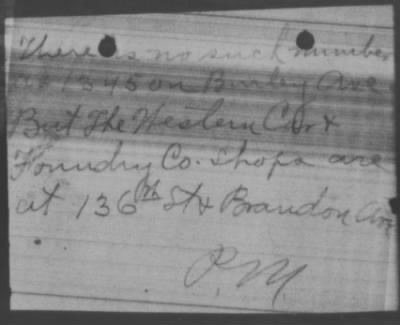 There is no such number
as 13450 on Burley Ave
But The Western Car &
Foundry Co. shops are
at 136th St & Brandon Ave
P.M.